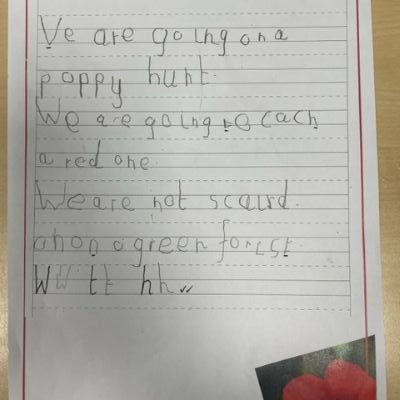 We are going on a
poppy hunt.
We are going to cach
a red one.
We are not scaurd.
ohoo a green forest.
W W t t h h